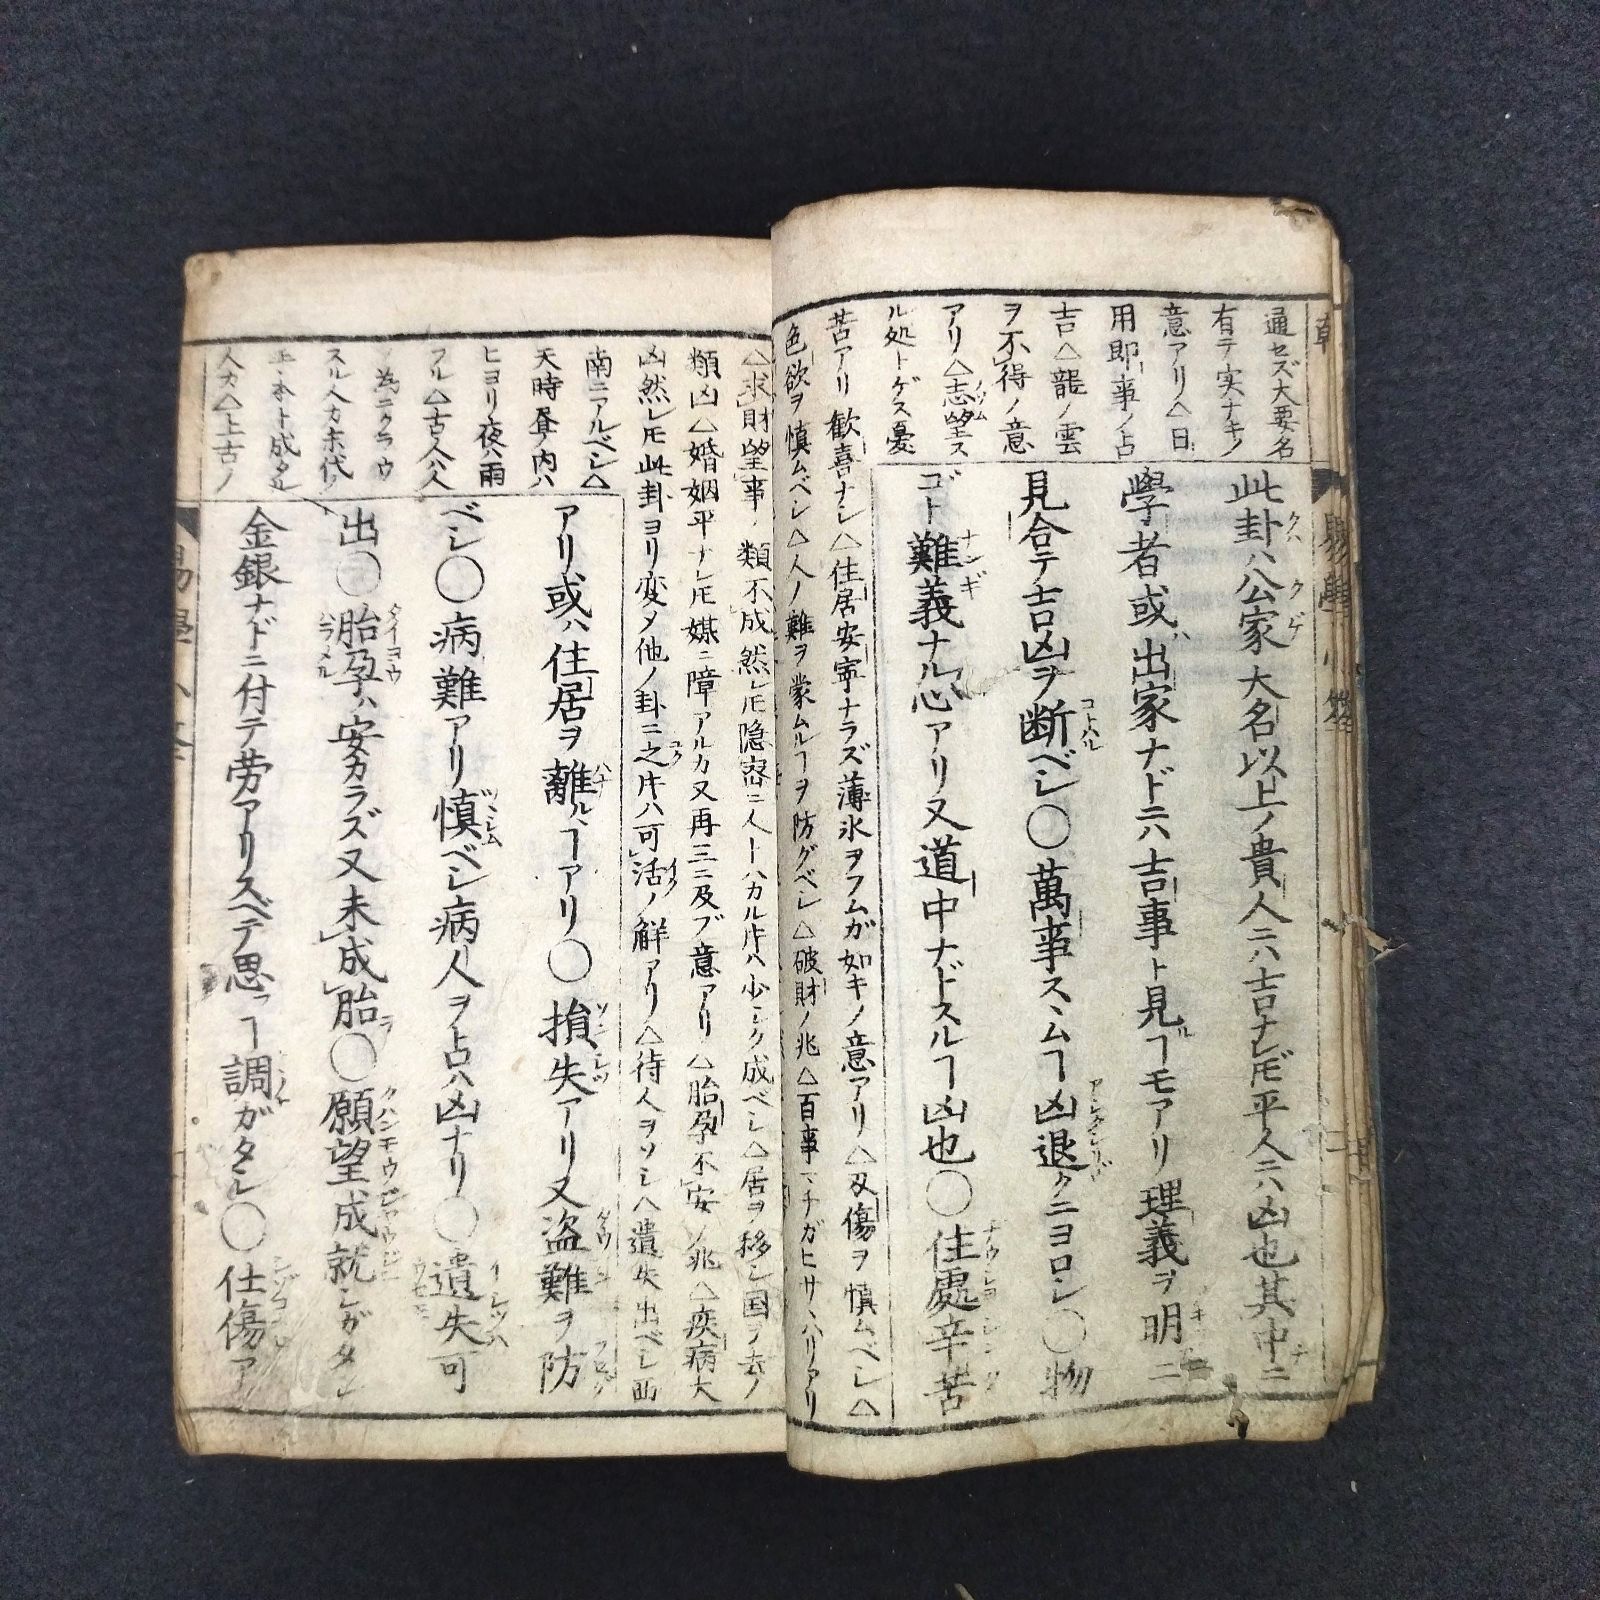 乾
易學小筌
通セズ大要名
有テ実ナキノ
意アリ△日
用即事ノ占
吉△龍ノ雲
ヲ不得ノ意
アリ△志望ス
ル処トゲズ憂
苦アリ歓喜ナシ△住居安寧ナラズ薄氷ヲフムガ如キノ意アリ△刄傷ヲ慎ムベシ△
色欲ヲ慎ムベシ△人ノ難ヲ蒙ムルヿヲ防グベシ△破財ノ兆△百事マチガヒサヽハリアリ
此卦ハ公家大名以上ノ貴人ニハ吉ナレ𪜈平人ニハ凶也其中ニ
學者或ハ出家ナドニハ吉事ト見ルヿモアリ理義ヲ明ニ
見合テ吉凶ヲ断ベシ〇萬事スヽムヿ凶退クニヨロシ〇物
ゴト難義ナル心アリ又道中ナドスルヿ凶也〇住處辛苦
△求財望事ノ類不成然レ𪜈隠密ニ人トハカル片ハ少シク成ベシ△居ヲ移シ国ヲ去ノ
類凶△婚姻平ナレ𪜈媒ニ障アルカ又再三ニ及ブ意アリ△胎孕不安ノ兆△疾病大
凶然レ𪜈此卦ヨリ変メ他ノ卦ニ之片ハ可活ノ解アリ△待人ヲソシ△遺失出ベシ西
南ニアルベシ△
天時昼ノ内ハ
ヒヨリ夜ハ雨
フル△古人ハ人
ノ為ニクラウ
スル人カ末代ノ
手本ト成タル
人カ△上古ノ
アリ或ハ住居ヲ離ルヽヿアリ〇損失アリ又盗難ヲ防
ベシ〇病難アリ慎ベシ病人ヲ占ハ凶ナリ〇遺失可
出〇胎孕ハ安カラズ又未成胎〇願望成就シガタシ
金銀ナドニ付テ労アリスベテ思フヿ調ガタシ〇仕傷ア